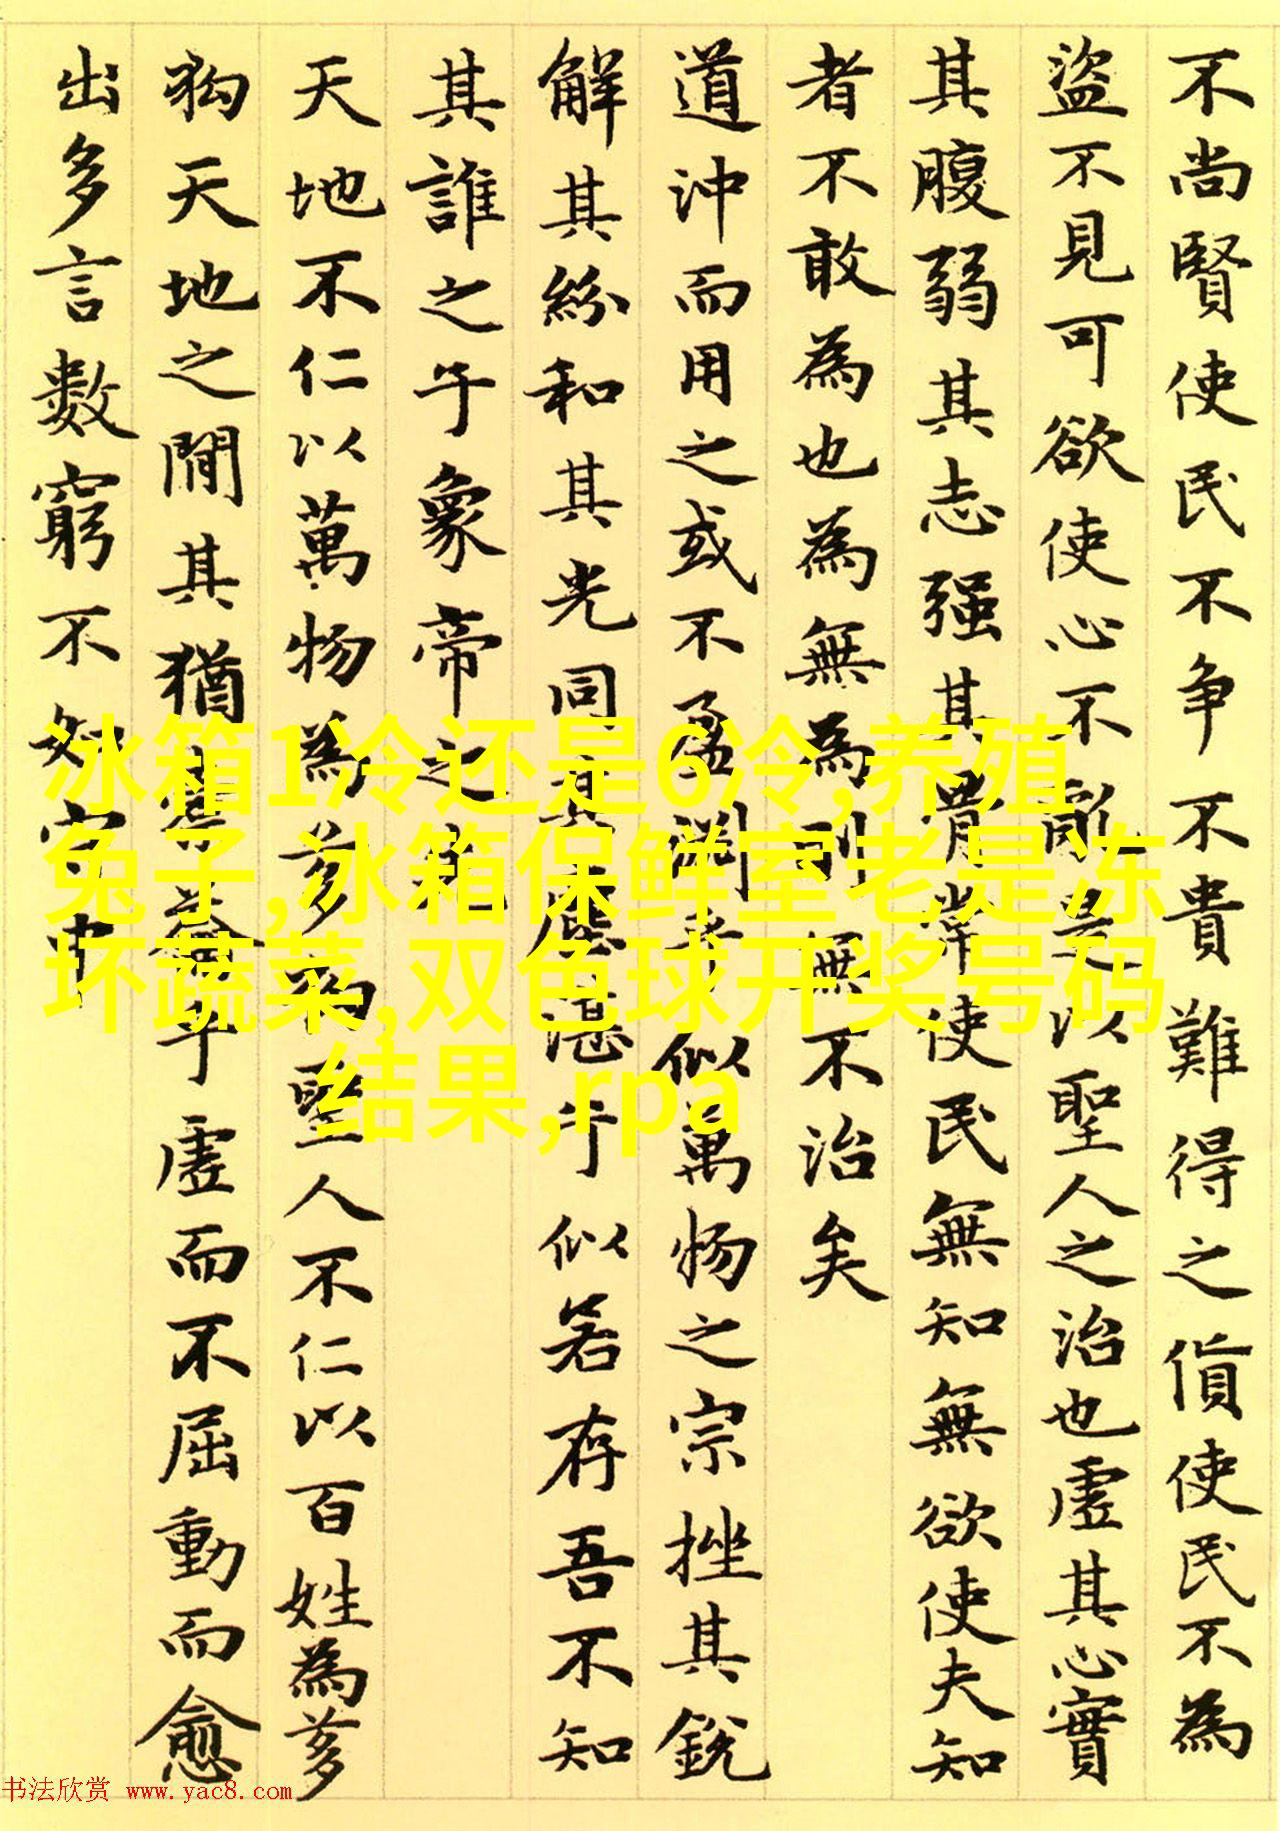 不尚賢使民不争不貴難得之貨使民不為
盜不見可欲使心不亂是以聖人之治也虛其心實
其腹弱其志强其骨常使民無知無欲使夫知
者不敢為也為無為則無不治矣
道沖而用之或不盈淵乎似萬物之宗挫其銳
解其紛和其光同其塵湛乎似若存吾不知
其誰之子象帝之先
天地不仁以萬物為芻狗聖人不仁以百姓為芻
狗天地之間其猶橐籥乎虛而不屈動而愈
出多言數窮不如守中
冰箱1冷还是6冷,养殖
兔子,冰箱保鲜室老是冻
坏蔬菜,双色球开奖号码
结果,rpa
书法欣赏 www.yac8.com